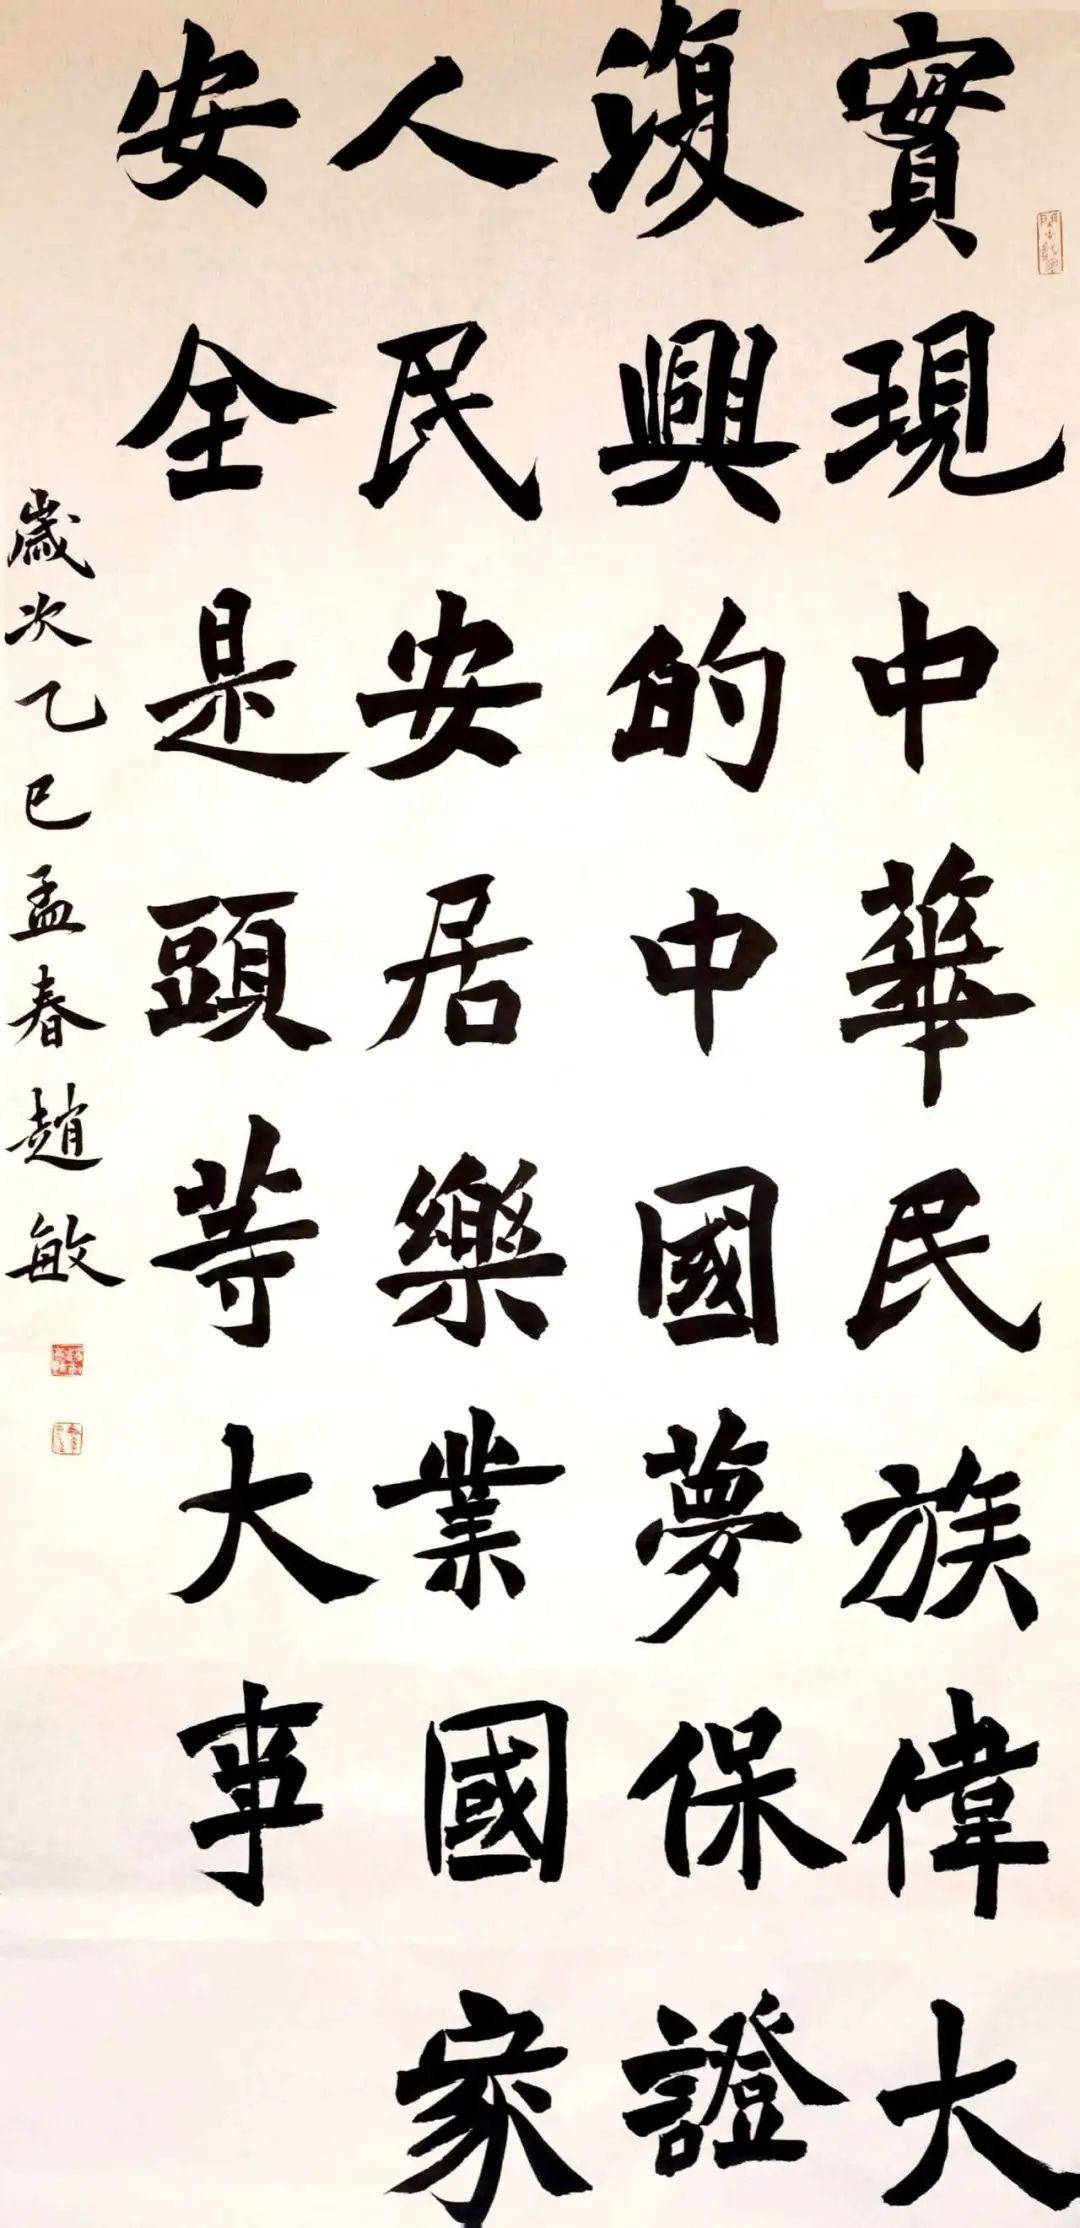 實現中華民族偉大
復興的中國夢保證
人民安居樂業國家
安全是頭等大事
歲次乙巳孟春趙敏